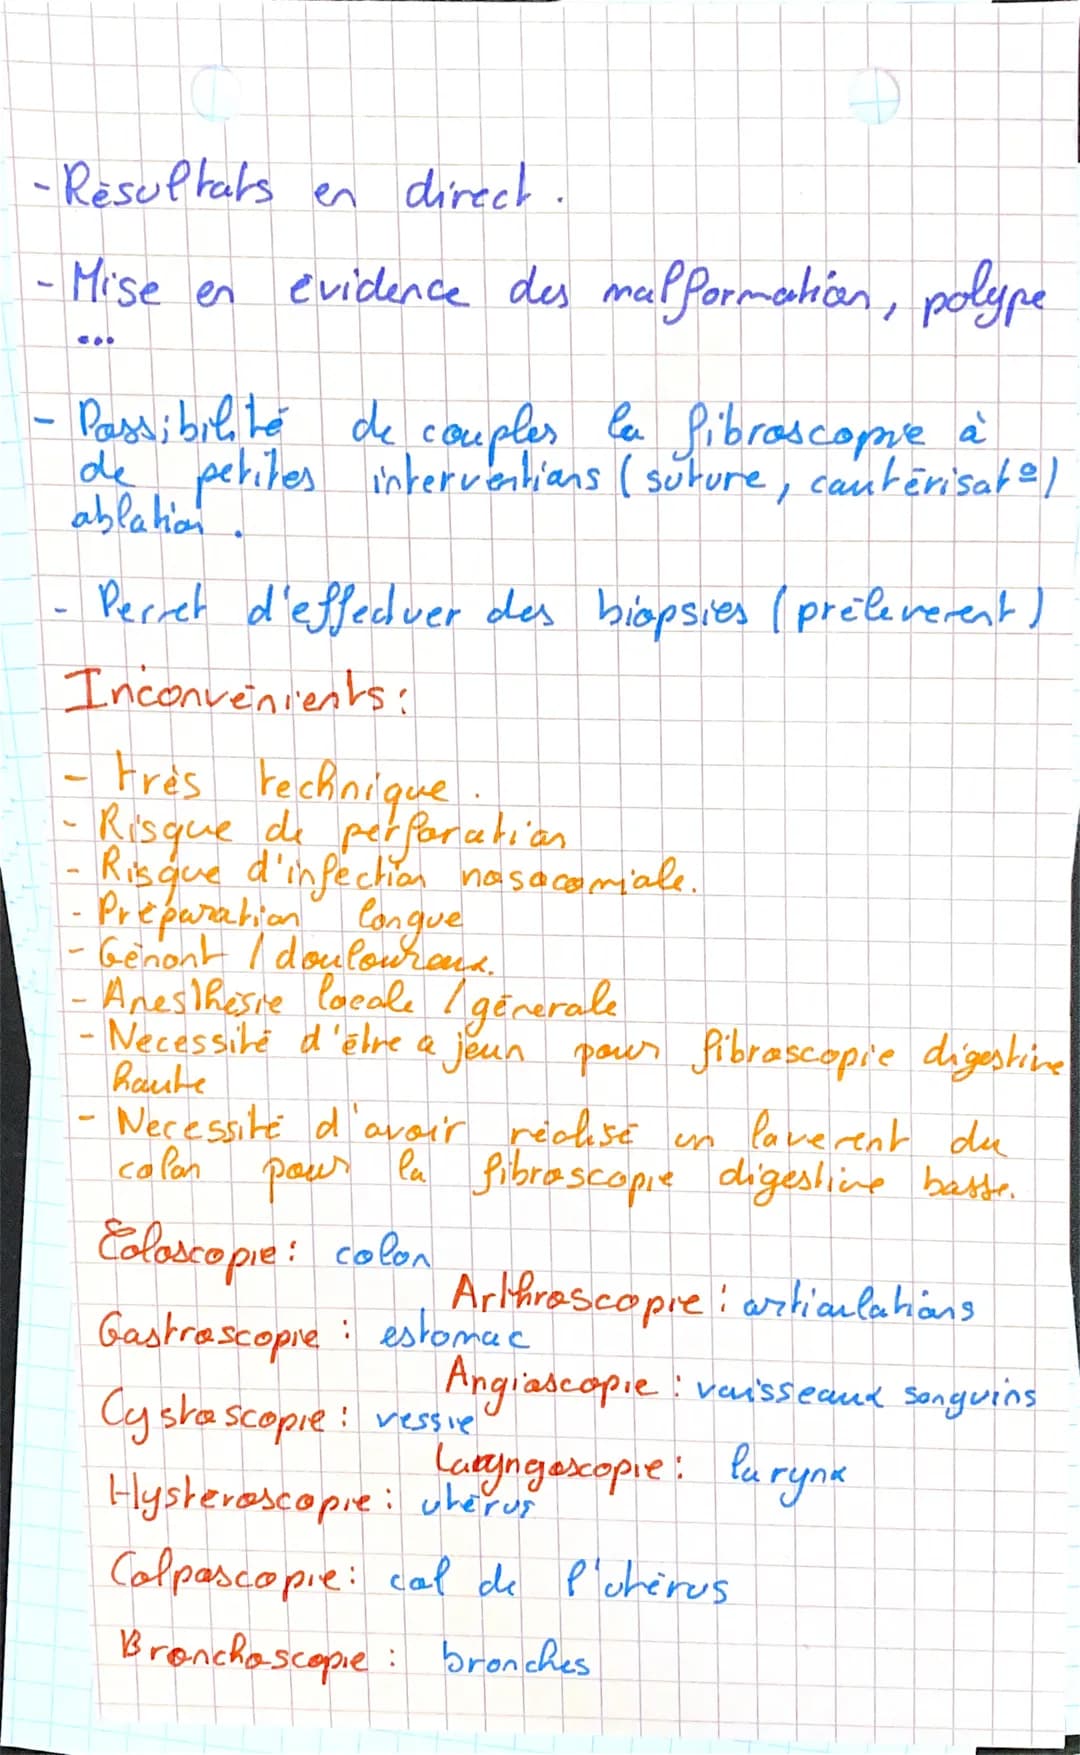 - Résultats en direct.
- Mise en évidence des malformation, polype
...
- Possibilité de coupler la fibroscopie à
de petites interventions (suture, cautérisat°)
ablation.
- Permet d'effectuer des biopsies (prélevement)
Inconvénients :
- très technique.
- Risque de perforation
- Risque d'infection nosocomiale.
- Préparation longue
- Gênant / douloureux.
- Anesthésie locale / générale
- Necessité d'être a jeun pour fibroscopie digestive
haute
- Necessité d'avoir réalisé un lavement du
colon pour la fibroscopie digestive basse.
Coloscopie : colon
Arthroscopie : articulations
Gastroscopie : estomac
Angioscopie : vaisseaux sanguins
Cystoscopie : vessie
Laryngoscopie : larynx
Hysteroscopie : utérus
Colposcopie : col de l'utérus
Bronchoscopie : bronches